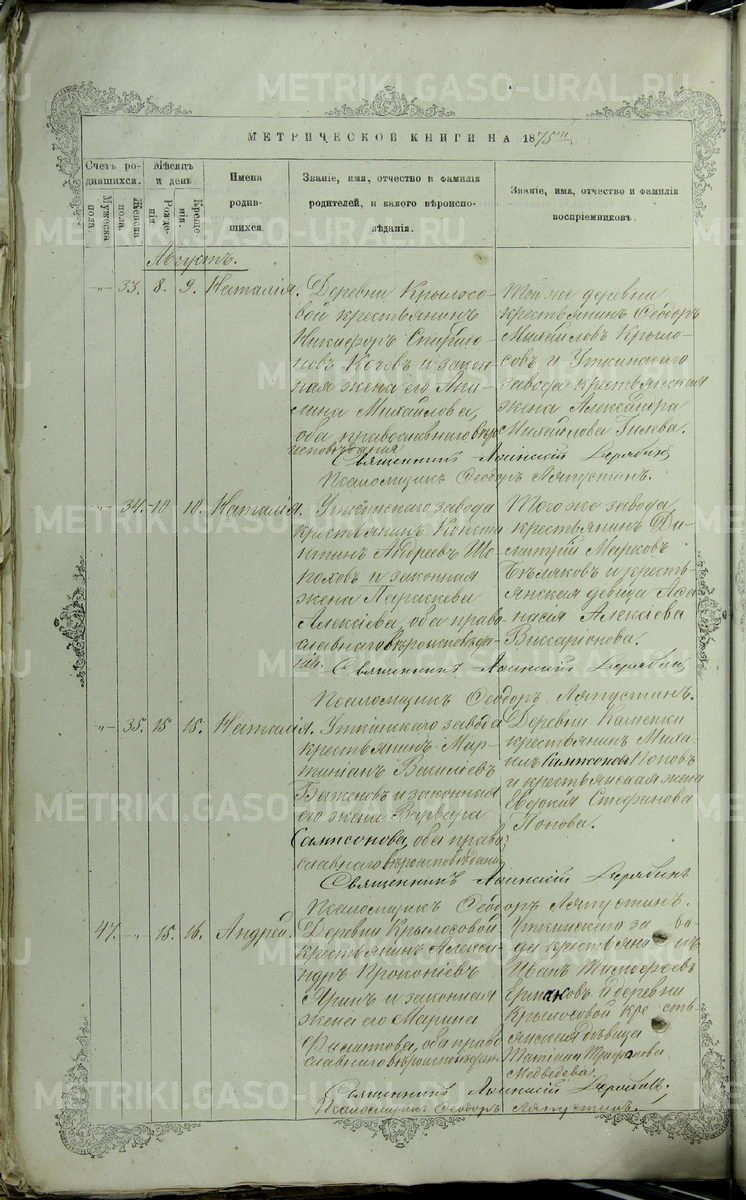 МЕТРИЧЕСКОЙ КНИГИ НА 1875й
Счетъ ро-
дившихся.
Мужеска
пола.
Женска
пола.
Мѣсяцъ
и день
Рожде-
нія.
Креще-
нія.
Имена
родив-
шихся.
Званіе, имя, отчество и фамилія
родителей, и какого вѣроиспо-
вѣданія.
Званіе, имя, отчество и фамилія
воспріемниковъ.
Августъ.
-"- 33. 8. 9. Наталія.
Деревни Крылосо-
вой крестьянинъ
Никифоръ Спиридо-
новъ Кочевъ и закон-
ная жена его
Михайлова,
оба православнаго вѣро
исповѣданія
Той же деревни
крестьянинъ Ѳеодоръ
Михайловъ Крыло-
совъ и Уткинскаго
завода крестьянская
жена Александра
Михайлова Гилева.
Священникъ Дерябинъ
Псаломщикъ Ѳеодоръ Ляпустинъ.
-"- 34. 10 10. Наталія.
Уткинскаго завода
крестьянинъ Конста
нтинъ Андреевъ
и законная
жена Параскева
Алексіева, оба право
славнаго вѣроисповѣда-
нія.
Того же завода
крестьянинъ Ди-
митрій Марковъ
Бѣляковъ и кресть
янская девица Аѳа
насія Алексіева
Виссаріонова.
Священникъ Дерябинъ
Псаломщикъ Ѳеодоръ Ляпустинъ.
-"- 35. 15 15. Наталія.
Уткинскаго завода
крестьянинъ Мар-
Василіевъ
Баженовъ и законная
его жена Варвара
Сампсонова, оба право
славнаго вѣроисповѣданія
Деревни Каменки
крестьянинъ Миха
илъ Сампсоновъ Поповъ
и крестьянская жена
Евдокія Стефанова
Попова.
Священникъ Дерябинъ
Псаломщикъ Ѳеодоръ Ляпустинъ.
47. -"- 15. 16. Андрей.
Деревни Крылосовой
крестьянинъ Алекса-
ндръ Прокопіевъ
и законная
жена его Марина
оба право
славнаго вѣроисповѣдан.
Уткинскаго заво-
да крестьянинъ
Иванъ Тимофеевъ
Ермаковъ и деревни
Крылосовой кресть-
янская дѣвица
Татіана Трифонова
Медведева.
Священникъ Дерябинъ
Псаломщикъ Ѳеодоръ Ляпустинъ.
METRIKI.GASO-URAL.RU